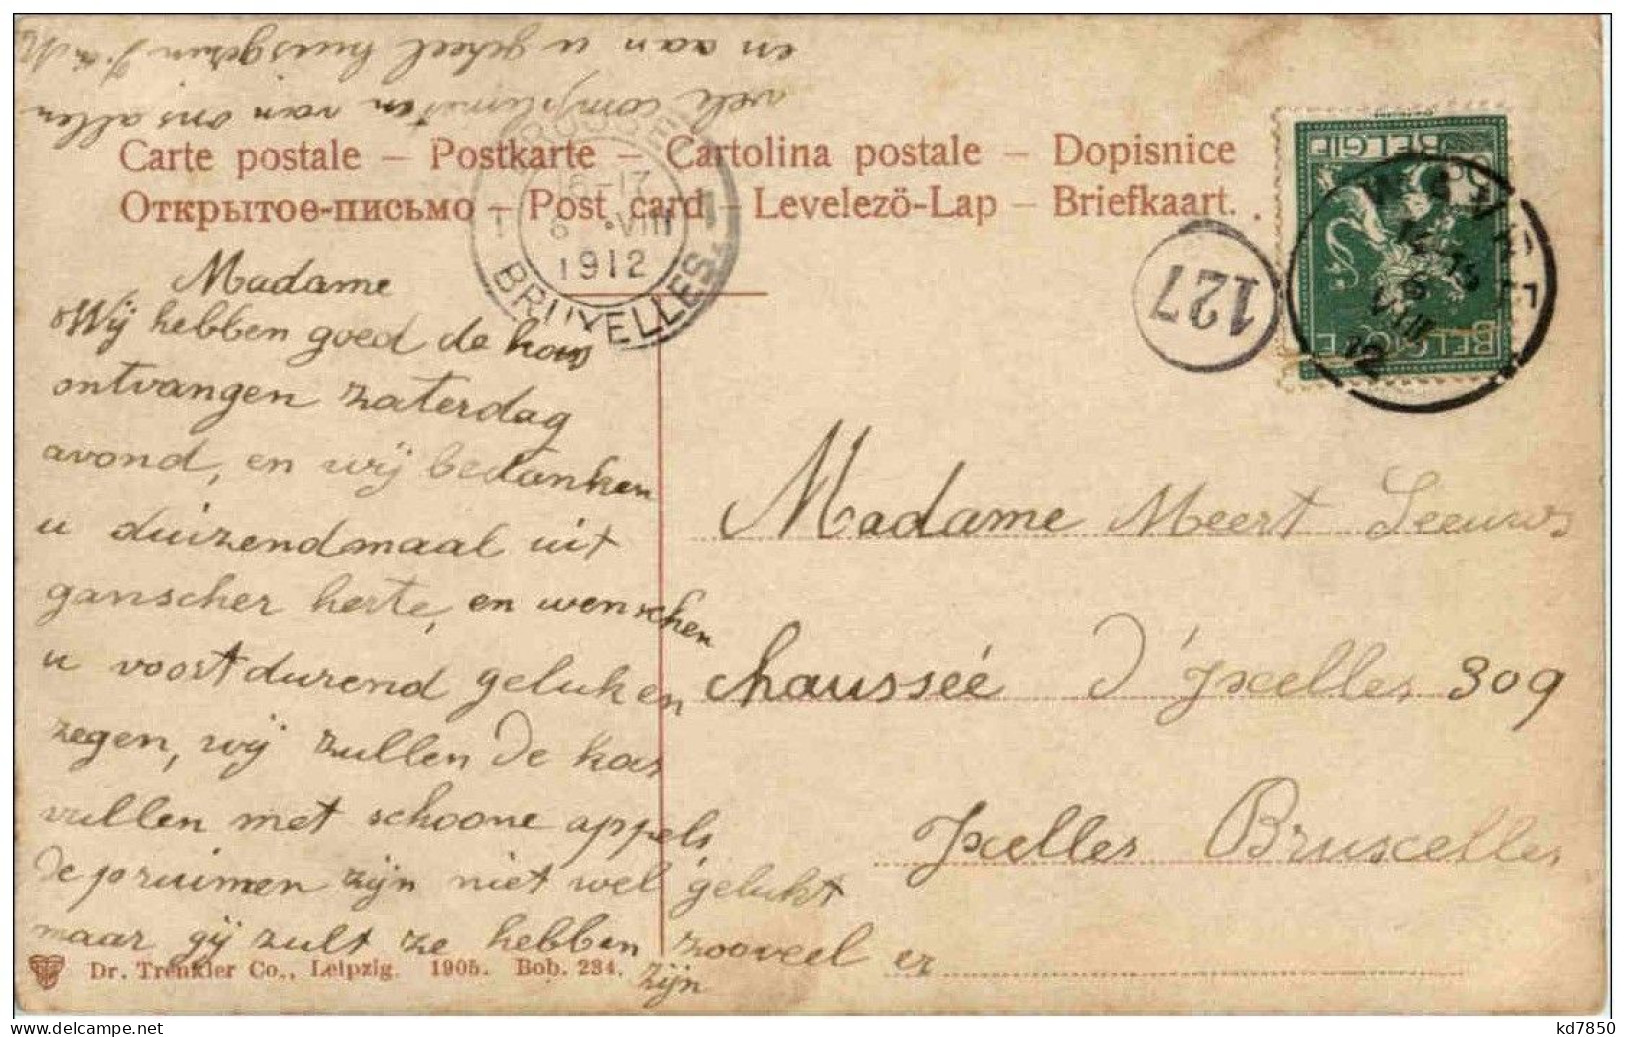 en aan u geheel huisgezin J. a. M
vele complimenten van ons allen
Carte postale – Postkarte – Cartolina postale – Dopisnice
Открытое-письмо – Post card – Levelezö-Lap – Briefkaart.
16-17
6 VIII
1912
BRUXELLES
127
BELGIE
BELGIQUE
14-15
6
VIII
12
Madame
Wij hebben goed de
ontvangen zaterdag
avond, en wij bedanken
u duizendmaal uit
ganscher herte, en wenschen
u voortdurend geluk en
zegen, wij zullen de
vullen met schoone appels
de pruimen zijn niet wel gelukt
maar gij zult ze hebben zooveel er
zijn
Madame Meert Leeuws
chaussée d'Ixelles 309
Ixelles Bruxelles
Dr. Trenkler Co., Leipzig. 1905. Bob. 234.
kd7850